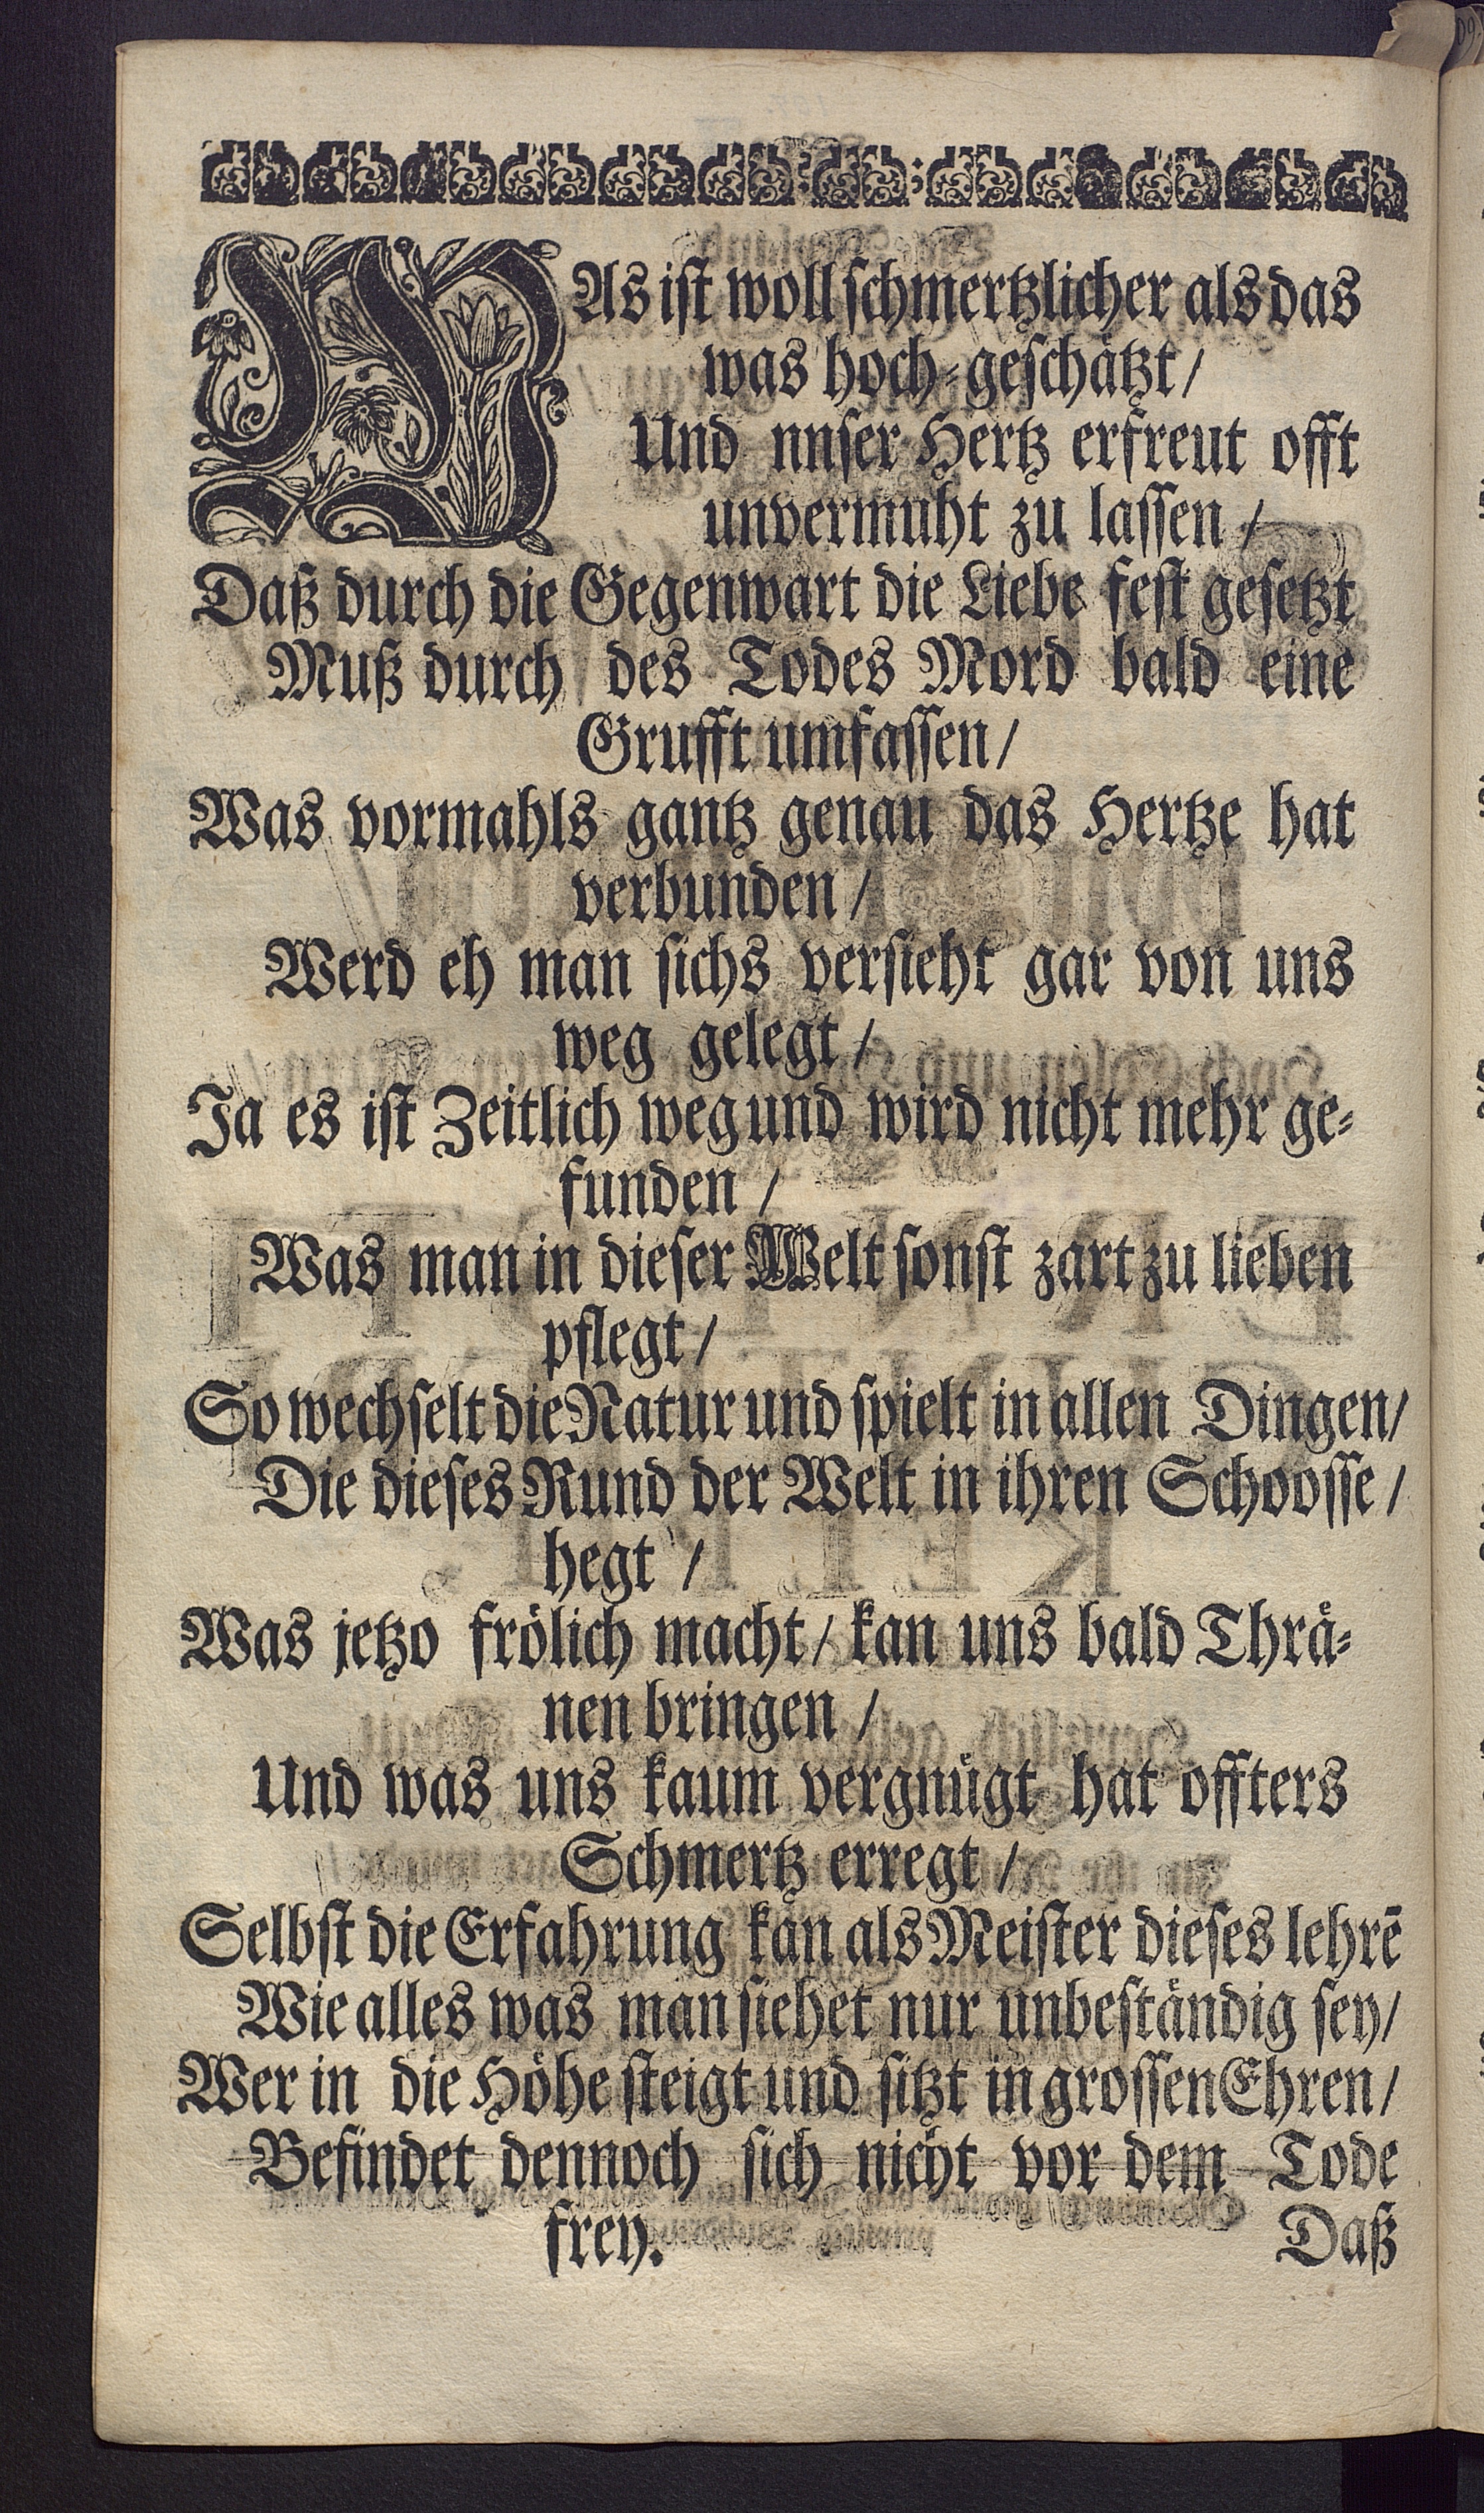 WAs ist woll schmertzlicher als das
was hoch-geschätzt /
Und nnser Hertz erfreut offt
unvermuht zu lassen /
Daß durch die Gegenwart die Liebe fest gesetzt
Muß durch des Todes Mord bald eine
Grufft umfassen /
Was vormahls gantz genau das Hertze hat
verbunden /
Werd eh man sichs versieht gar von uns
weg gelegt /
Ja es ist Zeitlich weg und wird nicht mehr ge-
funden /
Was man in dieser Welt sonst zart zu lieben
pflegt /
So wechselt die Natur und spielt in allen Dingen /
Die dieses Rund der Welt in ihren Schoosse /
hegt /
Was jetzo frölich macht / kan uns bald Thrä-
nen bringen /
Und was uns kaum vergnügt hat offters
Schmertz erregt /
Selbst die Erfahrung kan als Meister dieses lehrē
Wie alles was man siehet nur unbeständig sey /
Wer in die Höhe steigt und sitzt in grossen Ehren /
Befindet dennoch sich nicht vor dem Tode
frey. Daß